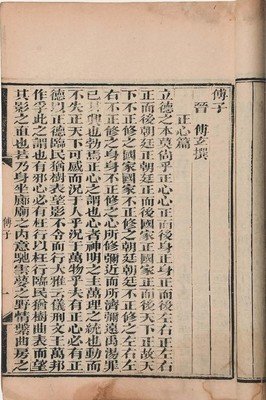 傅子
晉 傅玄撰
正心篇
立德之本莫尚乎正心心正而後身正身正而後左右正左右
正而後朝廷正朝廷正而後國家正國家正而後天下正故天
下不正修之國家國家不正修之朝廷朝廷不正修之左右左
右不正修之身身不正修之心所修彌近而所濟彌遠禹湯罪
己其興也勃焉正心之謂也心者神明之主萬理之統也動而
不失正天下可感而況于人乎況于萬物乎夫有正心必有正
德以正德臨民猶樹表望影不令而行大雅云儀刑文王萬邦
作孚此之謂也有邪心必有枉行以枉行臨民猶樹曲表而望
其影之直也若乃身坐廊廟之內意馳雲夢之野情繫曲房之
傅子
一